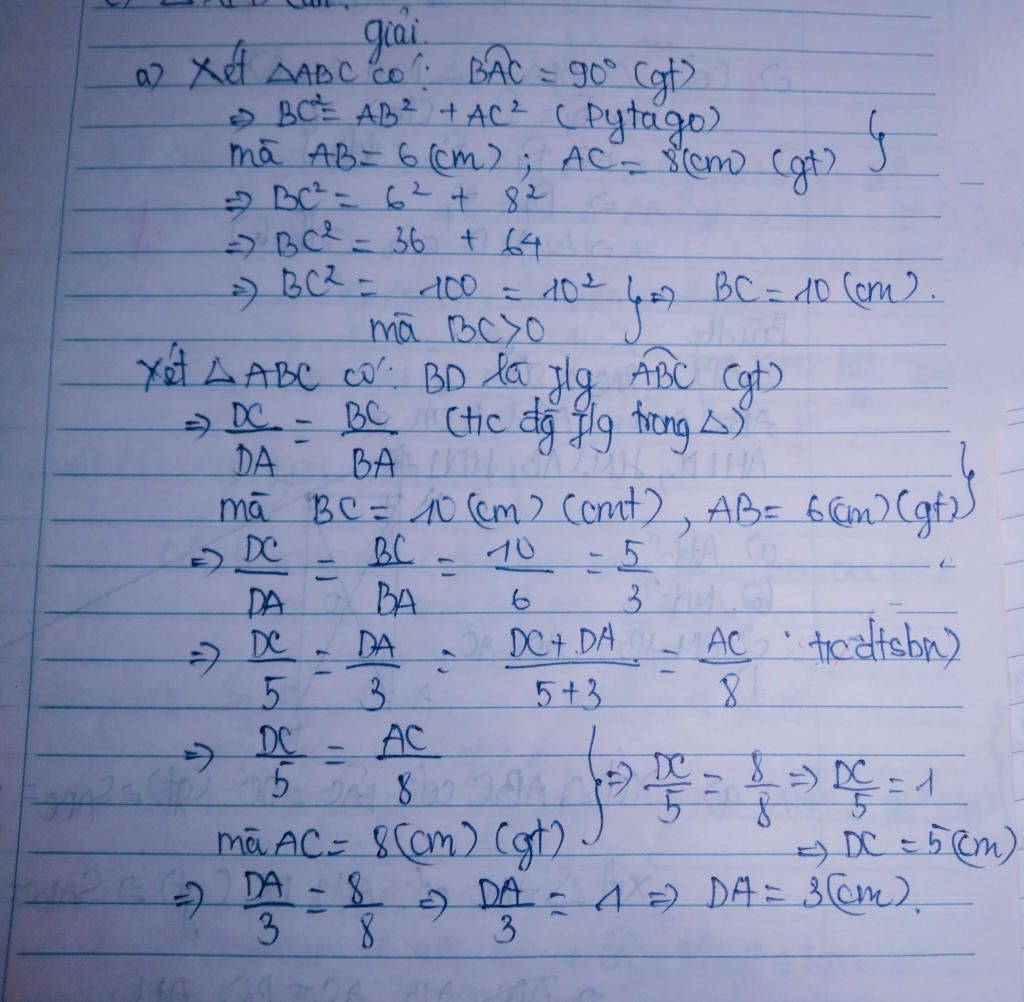 giải.
a) Xét △ABC có: BAC = 90° (gt)
=> BC² = AB² + AC² (Pytago)
mà AB = 6 (cm) ; AC = 8 (cm) (gt) }
=> BC² = 6² + 8²
=> BC² = 36 + 64
=> BC² = 100 = 10² } => BC = 10 (cm).
mà BC > 0
Xét △ABC có: BD là f/g ABC (gt)
=> DC/DA = BC/BA (t/c đg f/g trong △)
mà BC = 10 (cm) (cmt), AB = 6 (cm) (gt) }
=> DC/DA = BC/BA = 10/6 = 5/3
=> DC/5 = DA/3 = DC + DA/5+3 = AC/8 t/cdtsbn)
=> DC/5 = AC/8 } => DC/5 = 8/8 => DC/5 = 1
mà AC = 8 (cm) (gt) => DC = 5 (cm)
=> DA/3 = 8/8 => DA/3 = 1 => DA = 3 (cm).